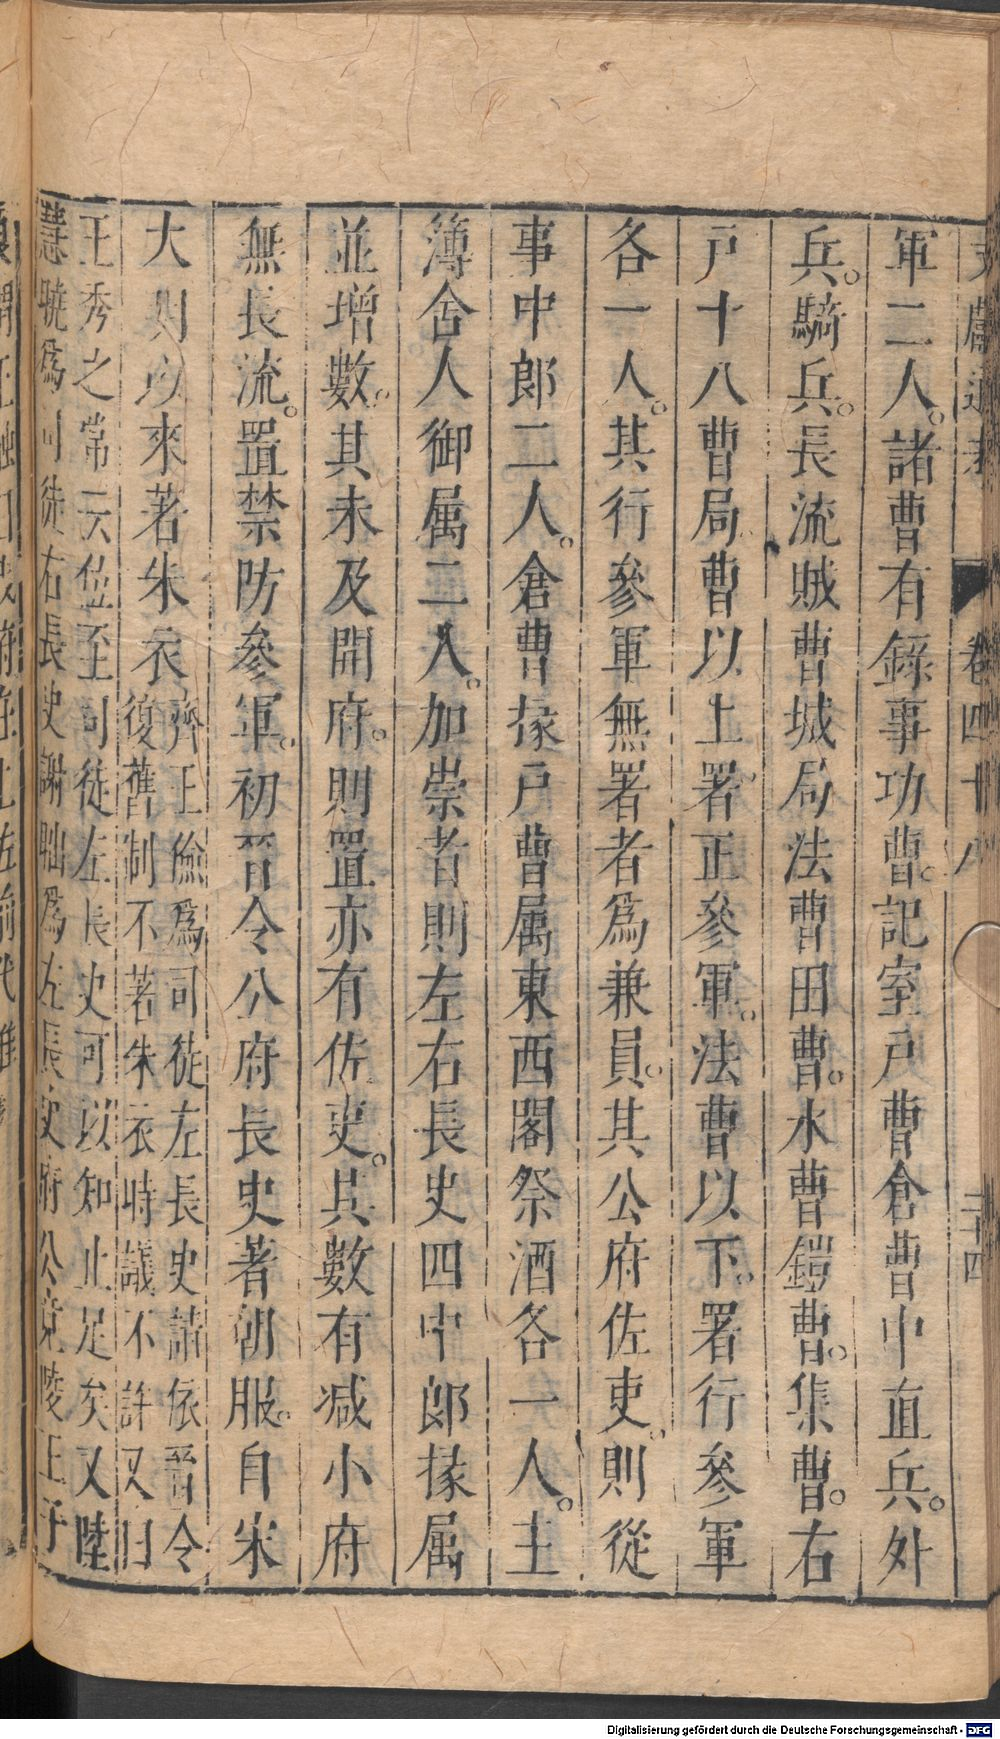 文獻通考 卷四十八 二十四
軍二人。諸曹有錄事功曹。記室戸曹倉曹中直兵。外
兵。騎兵。長流賊曹城局法曹田曹。水曹鎧曹。集曹。右
戸十八曹局曹以上署正參軍。法曹以下署行參軍
各一人。其行參軍無署者爲兼員。其公府佐吏則從
事中郎二人。倉曹掾戸曹屬東西閣祭酒各一人。主
簿舍人御属二人。加崇者則左右長史四中郎掾属
並增數。其未及開府。則置亦有佐吏。其數有減小府
無長流。置禁防參軍。初晉令公府長史著朝服。自宋
大明以來著朱衣 齊王儉爲司徒左長史請依晉令
復舊制不著朱衣時議不許又曰
王秀之常云位至司徒左長史可以知止足矣又陸
慧曉爲司徒右長史謝朏爲左長史府公竟陵王子
Digitalisierung gefördert durch die Deutsche Forschungsgemeinschaft - DFG